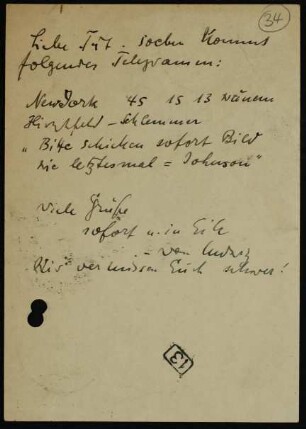 34
Liebe Tut. soeben kommt
folgendes Telegramm:
New York 45 15 13
Hirschfeld – Schlemmer
„Bitte schicken sofort Bild
wie letztesmal = Johnson"
viele Grüße
sofort u. in Eile
– von
Wir vermissen Euch schwer!
13